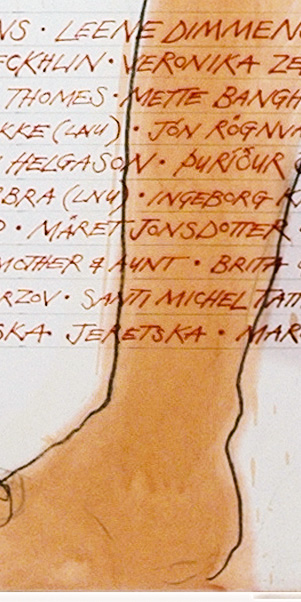 NS · LEENE DIMMEN
ECKHLIN · VERONIKA ZE
THOMES · METTE BANGH
KKE (LNU) · JÓN RÖGNV
HELGASON · ÞURÍÐUR
RBRA (LNU) · INGEBORG K
· MÄRET JONSDOTTER
MOTHER & AUNT · BRITA
RZOV · SANTI MICHEL TATI
SKA JERETSKA · MAR